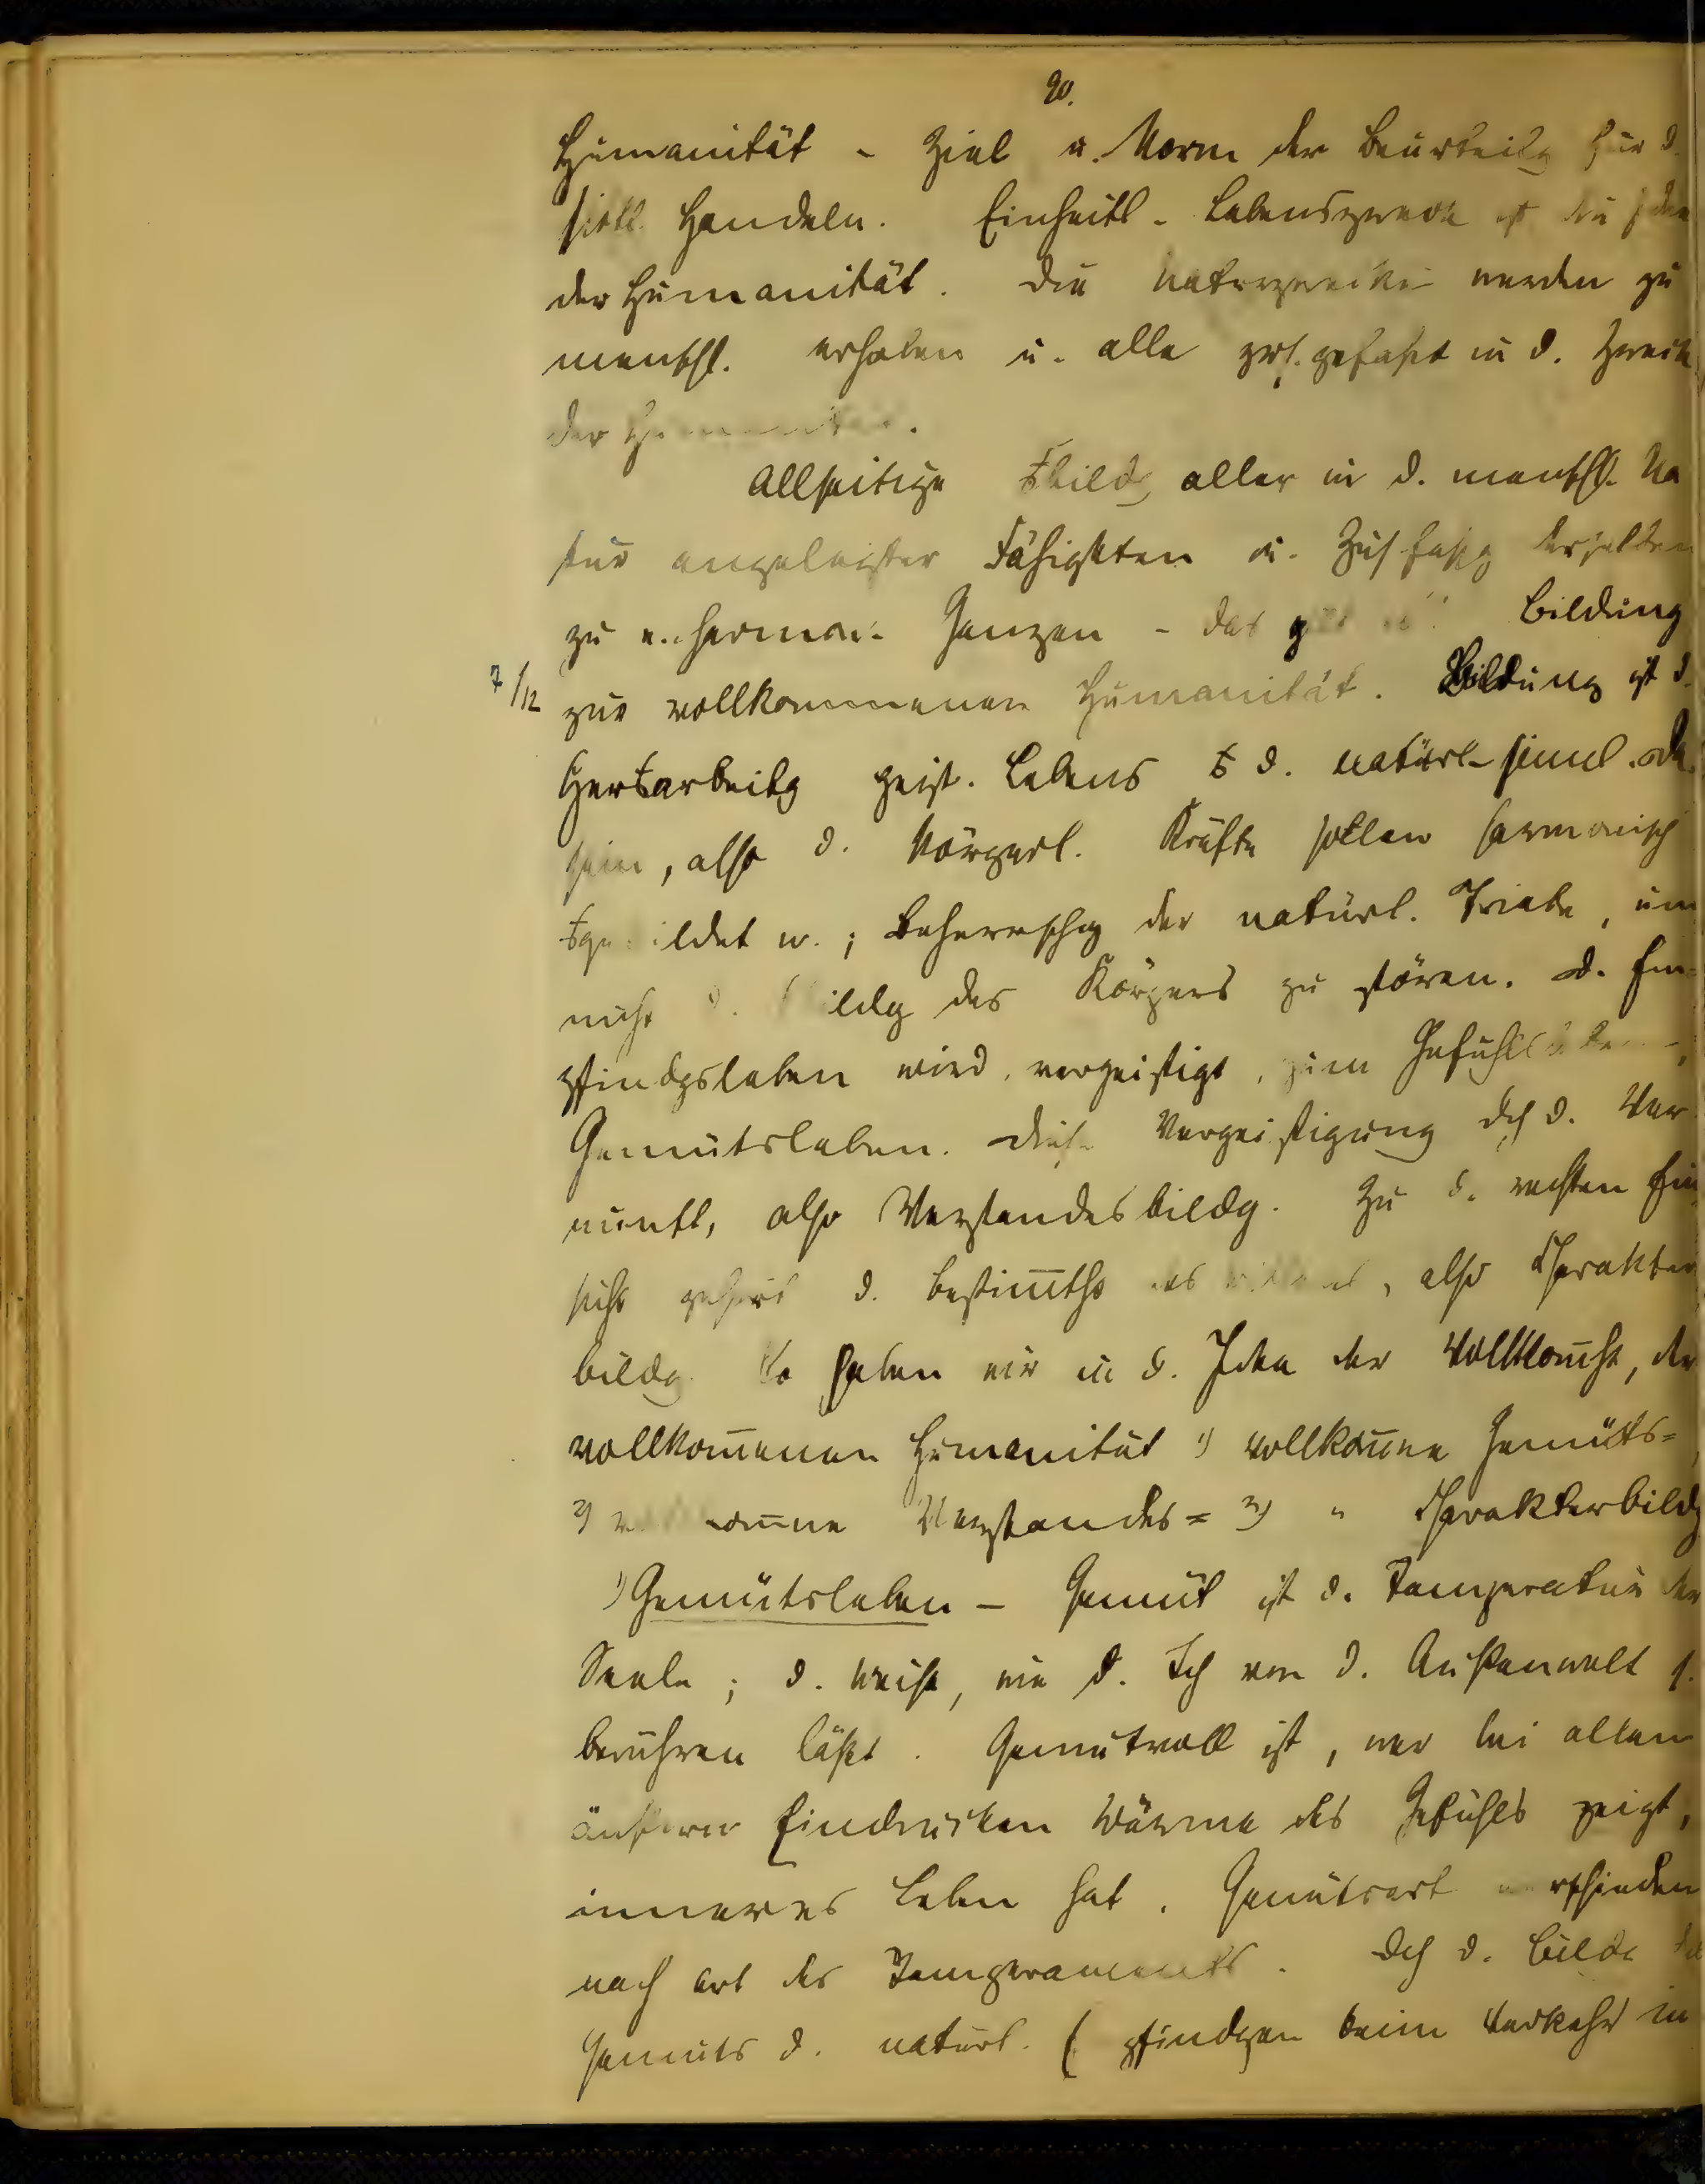 90.
Humanität - Ziel u. Norm der Beurteilg für d.
sittl. Handeln. Einheitl. Lebenszweck ist die Idee
der Humanität. Die Naturzwecke werden zu
menschl. erhoben u. alle zus. gefaßt in d. Zweck
der
Allseitige bildg aller in d. menschl. Na
tur angelegter Fähigkten u. Zusfassg derselben
zu e. harmon. Ganzen - das Bildung
7/12 zur vollkommenen Humanität. Bildung ist d.
Herausarbeitg geist. Lebens d. natürl. sinnl. Da
sein, also d. körperl. Kräfte sollen harmonisch
w.; Beherrschg der natürl. Triebe, um
nicht d. bildg des Körpers zu stören. D. Em-
pfindgsleben wird vergeistigt, zum
Gemütsleben. Diese Vergeistigung dch d. Ver
nunft, also Verstandesbildg. Zu d. rechten Ein
sicht gehört d. Bestim̅tht des Willens, also Charakter
bildg. So haben wir in d. Idee der Vollkom̅ht, der
vollkom̅enen Humanität 1) vollkom̅ne Gemüts=
2) vollkom̅ne Verstandes= 3) " Charakterbildg
1) Gemütsleben - Gemüt ist d. Temperatur der
Seele; d. Weise, wie d. Ich von d. Außenwelt s.
berühren läßt. Gemütvoll ist, wer bei allen
äußeren Eindrücken Wärme des Gefühls zeigt,
inneres Leben hat. Gemütsart verschieden
nach Art des Temperaments. Dch d. Bildg des
Gemüts d. natürl. Empfindgen beim Verkehr in